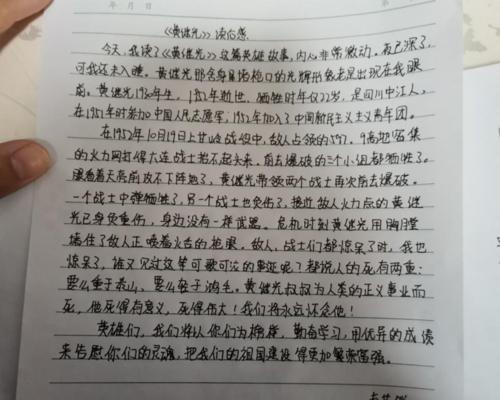 年 月 日
《黄继光》读后感
今天,我读了《黄继光》这篇英雄故事,内心非常激动。夜已深了,
可我还未入睡。黄继光那舍身堵枪口的光辉形象老是出现在我眼
前。黄继光1930年生,1952年逝世,牺牲时年仅22岁,是四川中江人。
在1951年时参加中国人民志愿军,1952年加入了中国新民主主义青年团。
在1952年10月19日上甘岭战役中,敌人占领的597.9高地密集
的火力网打得大连战士抬不起头来。前去爆破的三个小组都牺牲了。
眼看着天亮前攻不下阵地了,黄继光带领两个战士再次前去爆破。
一个战士中弹牺牲了,另一个战士也负伤了,接近敌人火力点的黄继
光已身负重伤,身边没有一样武器。危机时刻黄继光用胸膛
堵住了敌人正喷着火舌的枪眼。敌人、战士们都惊呆了时。我也
惊呆了,谁又见过这等可歌可泣的事迹呢?都说人的死有两重:
要么重于泰山,要么轻于鸿毛。黄继光叔叔为人类的正义事业而
死,他死得有意义,死得伟大!我们将永远怀念他!
英雄们,我们将以你们为榜样,勤奋学习,用优异的成绩
来告慰你们的灵魂,把我们的祖国建设得更加繁荣富强。